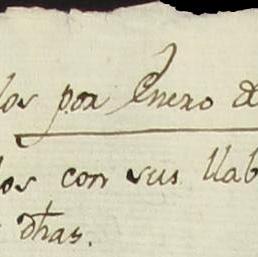 los por Enero d
los con sus llab
dhas.